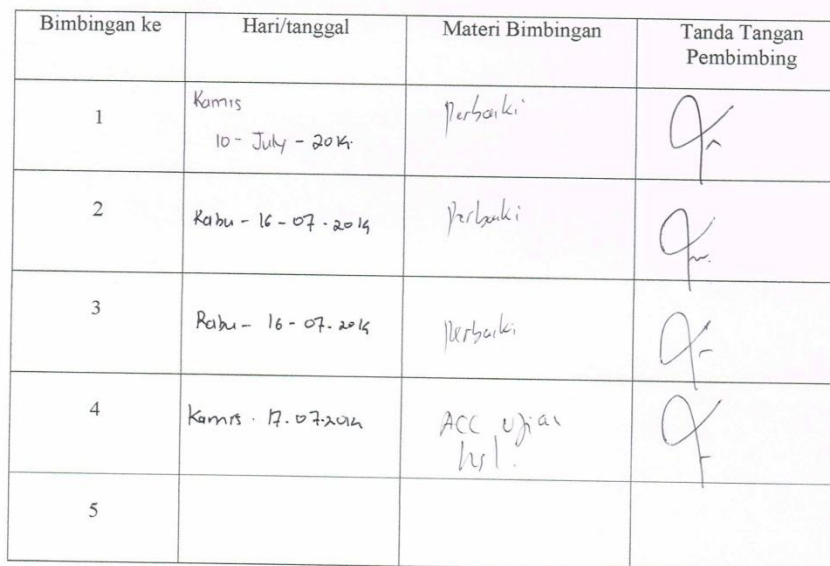 Bimbingan ke Hari/tanggal Materi Bimbingan Tanda Tangan
Pembimbing
1 Kamis Perbaiki
10 - July - 2014
2 Rabu - 16 - 07 - 2014 Perbaiki
3 Rabu - 16 - 07 - 2014 Perbaiki
4 Kamis . 17.07.2014 ACC Ujian
hsl.
5